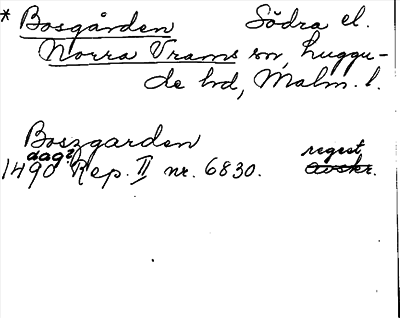 * Bosgården Södra el.
Norra Vrams sn, Luggu-
de hd, Malm. l.
Boszgarden
dag? regest
1490 Rep. II nr. 6830. avskr.